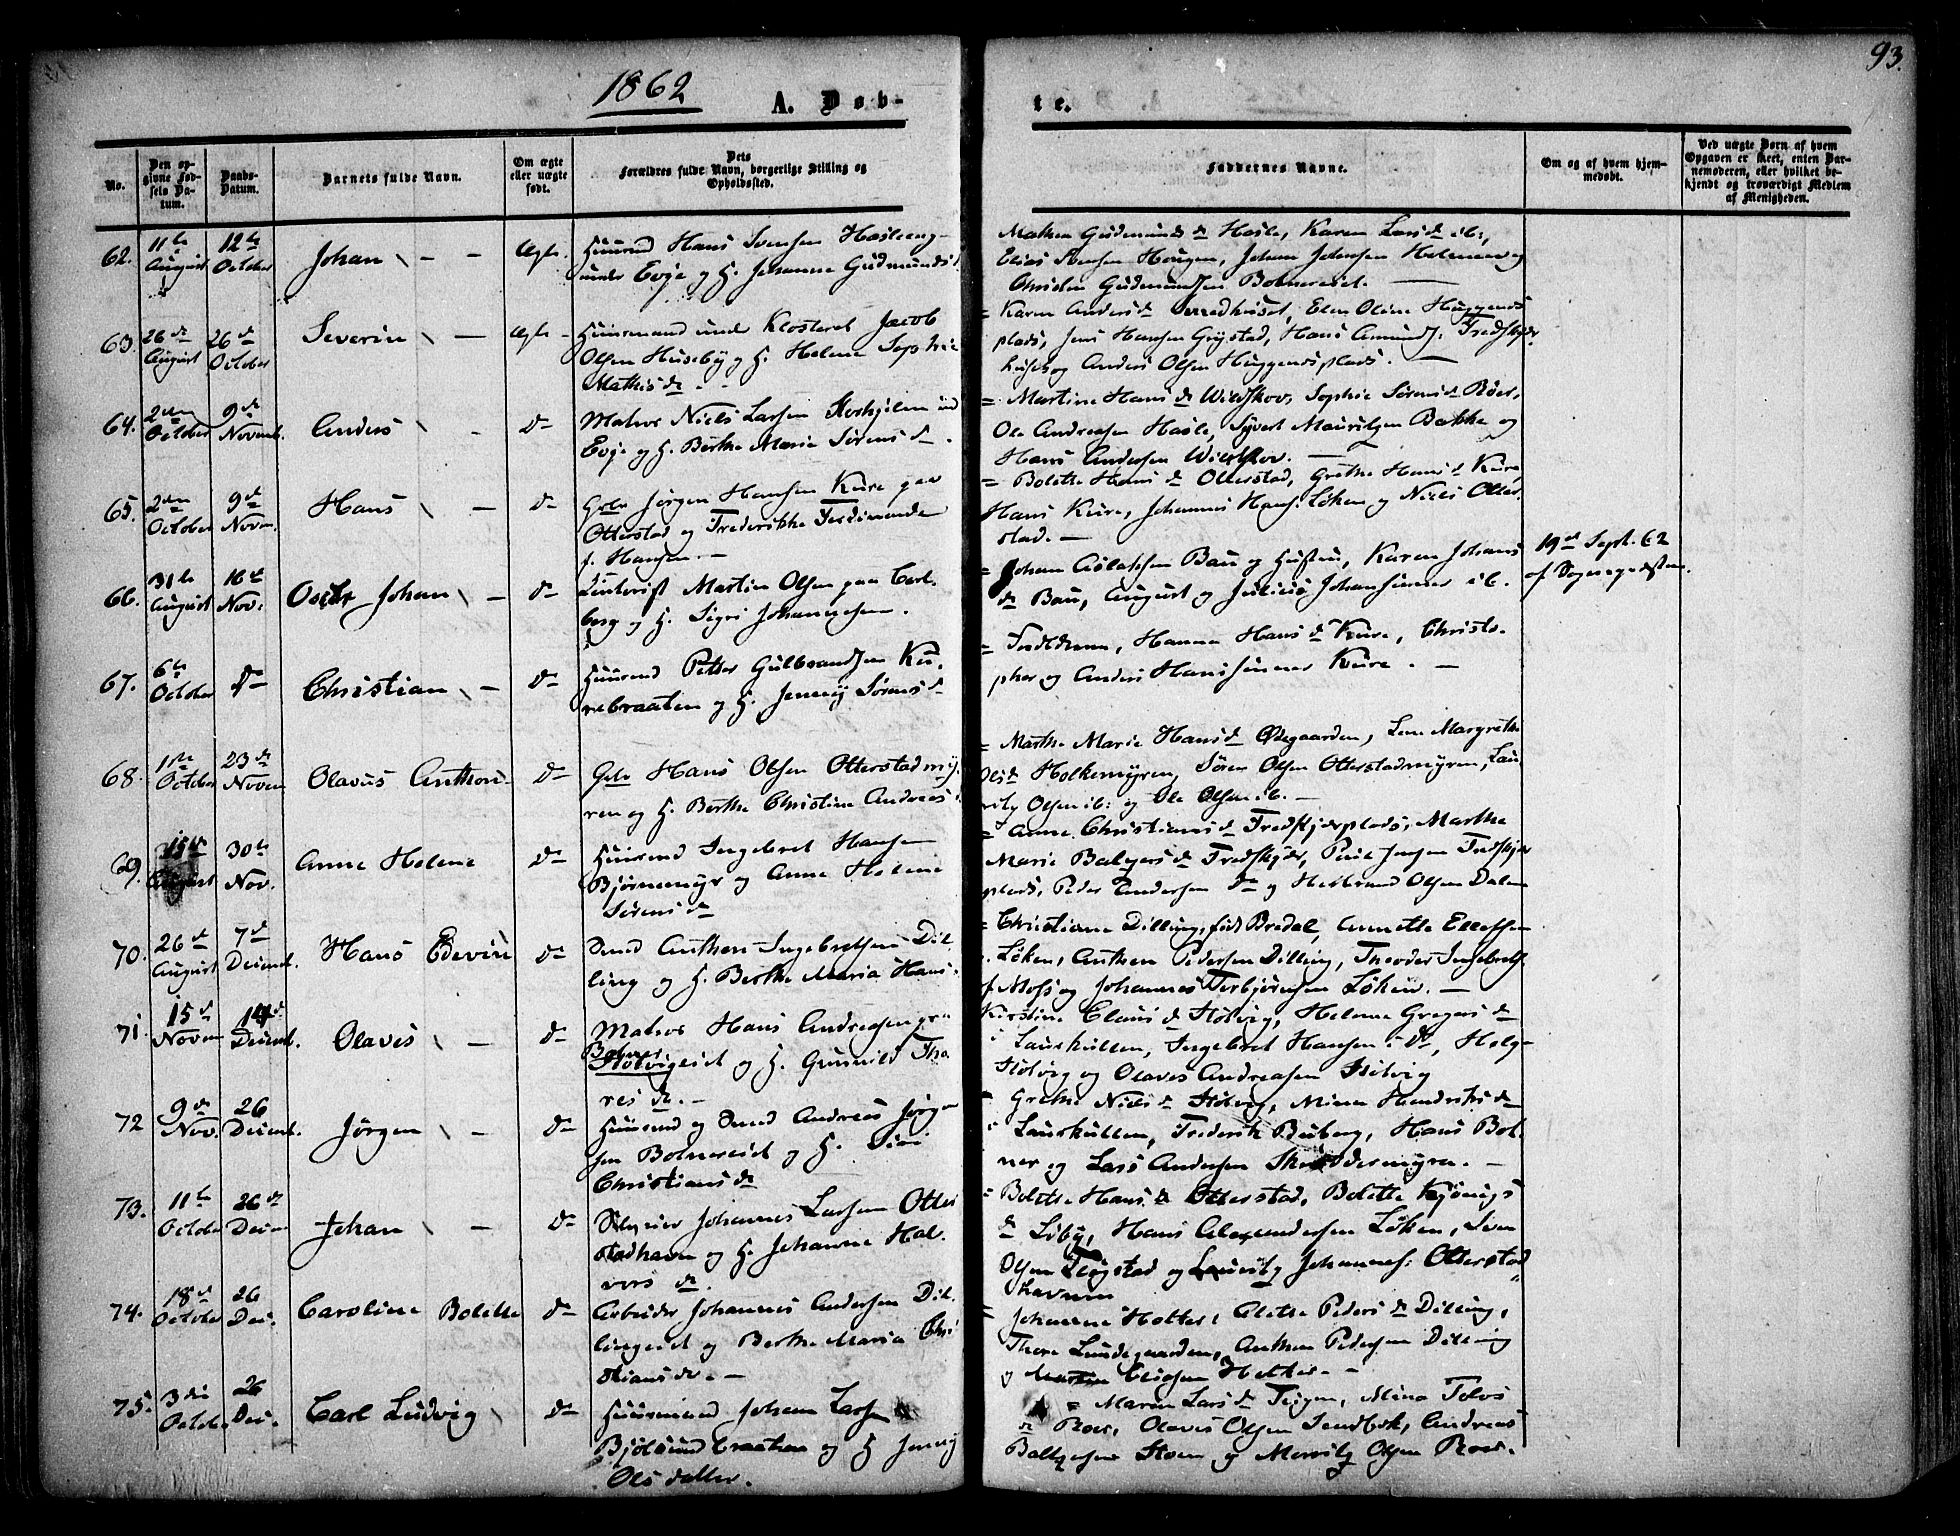 93.
1862
A. Døb-
te.
No.
Den op-
givne Fød-
sels Da-
tum.
Daabs-
Datum.
Barnets fulde Navn.
Om ægte
eller uægte
født.
Dets
Forældres fulde Navn, borgerlige Stilling og
Opholdssted.
Faddernes Navne.
Om og af hvem hjem-
medøbt.
Ved uægte Børn af hvem
Opgaven er skeet, enten Bar-
nemoderen, eller hvilket be-
kjendt og troværdigt Medlem
af Menigheden.
62.
11te
August
12te
October
Johan
Ægte
Huusmd Hans Svensen Hasleeng
under Evje og H. Johanne Gudmundsd
Mathea Gudmunds dr Hasle, Karen Larsd ib:,
Elias Hansen Hougen, Johan Johnsen Holmen og
Christen Gudmundsen Bolnereiet.
63.
26de
August
26de
October
Severin
Ægte
Huusmand under Klosteret Jacob
Olsen Huseby og H. Helene Sophie
Mathisdr
= Karen Andersdr Smedhuset, Elen Oline Huggends
plads, Jens Hansen Grystad, Hans Amundsen Fredskjær
huset og Anders Olsen Huggendsplads.
64.
2den
October
9de
Novemb.
Anders
do
Matros Niels Larsen Korshjelen und
Evje og H. Berthe Marie Sørensdr
= Martine Hans dr Wildskov, Sophie Sørensdr Roer,
Ole Andreasen Hasle, Syvert Mauritzen Bakke og
Hans Andersen Wildskov.
65.
2den
October
9de
Novm
Hans
do
Gbr Jørgen Hansen Kure paa
Otterstad og Frederikke Ferdinande
f. Hansen.
= Bolette Hans dr Otterstad, Grethe Hansd Kure,
Hans Kure, Johannes Hans. Løken og Niels Otter
stad.
66.
31te
August
16de
Nov.
Oscar Johan
do
Martin Olsen paa Carl
berg og H. Sigri Johannesen.
= Johan Aslaksen Bau og Hustru, Karen Johans
dr Bau, August og Julius Johansønner ib.
19de Sept. 62
af Sognepræsten.
67.
6te
October
do
Christian
do
Huusmd Petter Gulbrandsen Ku-
rebraaten og H. Jenny Sørensd
= Forældrene, Hanna Hans dr Kure, Christo-
pher og Anders Hanssønner Kure.
68.
1ste
October
23de
Novem
Olavus Anthon
do
Gbr Hans Olsen Otterstadmy-
ren og H. Berthe Christine Andreasd
= Marthe Marie Hansdr Ødegaarden, Lene Margrethe
Olsdr Holkemyren, Søren Olsen Otterstadmyren, Lau-
ritz Olsen ib: og Ole Olsen ib.
69.
15de
August
30te
Nov.
Anne Helene
do
Huusmd Ingebret Hansen
Bjørnemyr og Anne Helene
Sørensdr
= Anne Christiansdr Fredskjærplads, Marthe
Marie Baltzersdr Fredskjær, Jensen Fredskjær
plads, Peder Andersen do og Hellbrand Olsen Dalen
70.
26de
August
7de
Decemb.
Hans Edevin
do
Smed Anthon Ingebretsen Dil
ling og H. Berthe Maria Hans
= Christiane Dilling, fød Bredal, Annette Ellefsen
Løken, Anthon Pedersen Dilling, Theodor Ingebrets
f Moss og Johannes Torbjørnsen Løken.
71.
15d
Novem
14de
Decemb.
Olaves
do
Matros Hans Andreasen
Bolner
Stølvigeiet og H. Gunild Tho
res dr.
Kirstine Claus dr Stølvig, Helene Gregers dr
Laurkullen, Ingebret Hansen do, Helge
Stølvig og Olaves Andreasen Stølvig
72
9de
Nov.
26
Decemb.
Jørgen
do
Huusmd og Smed Andreas Jørgen
sen Bolnereiet og H.
Christiansdr
= Grethe Niels dr Stølvig, Mina Hendriksdr
Laurkullen, Frederik Buberg, Hans Bol-
ner og Lars Andersen Skreddermyra.
73.
11te
October
26de
Decem
Johan
do
Johannes Larsen Otter
stadhavn og H. Johanne Hal-
vors dr.
= Bolette Hans dr Otterstad, Bolette Kjønigs
dr Liby, Hans Alexandersen Løken, Sven
Olsen Tegstad og Lauritz Johannes: Otterstad
havn
74.
18de
October
26
Dec.
Caroline Bolette
do
Arbeider Johannes Andersen Dil-
lingeiet og Berthe Maria Chri
stiansdr.
= Johanne Holter, Alethe Peders dr Dilling,
Thore Lundegaarden, Anthon Pedersen Dilling
og Martin Eliasen Holter.
75.
3die
October
26
Dec.
Carl Ludvig
do
Huusmand Johan Larsen
Bjølsund braathen og H Jenny
Ols datter.
= Maren Lars dr Teigen, Mina Tolvs
dr Roer, Olaves Olsen Sendbek, Andreas
Baltzersen Stoen og Mauritz Olsen Roer.